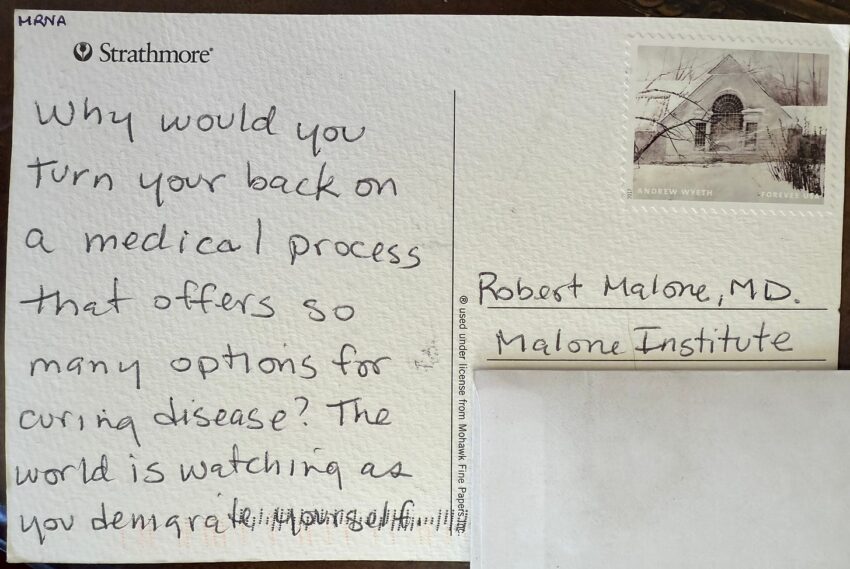 MRNA
Strathmore®
Why would you
turn your back on
a medical process
that offers so
many options for
curing disease? The
world is watching as
you demgrate yourself...
ANDREW WYETH
FOREVER USA
Robert Malone, MD.
Malone Institute
® used under license from Mohawk Fine Papers, Inc.